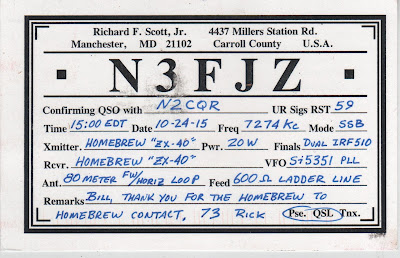 Richard F. Scott, Jr. 4437 Millers Station Rd.
Manchester, MD 21102 Carroll County U.S.A.
· N3FJZ ·
Confirming QSO with N2CQR UR Sigs RST 59
Time 15:00 EDT Date 10-24-15 Freq 7274 Kc Mode SSB
Xmitter. HOMEBREW "ZX-40" Pwr. 20W Finals DUAL IRF510
Rcvr. HOMEBREW "ZX-40" VFO Si5351 PLL
Ant. 80 METER FW/HORIZ LOOP Feed 600Ω LADDER LINE
Remarks BILL, THANK YOU FOR THE HOMEBREW TO
HOMEBREW CONTACT. 73 RICK Pse. QSL Tnx.